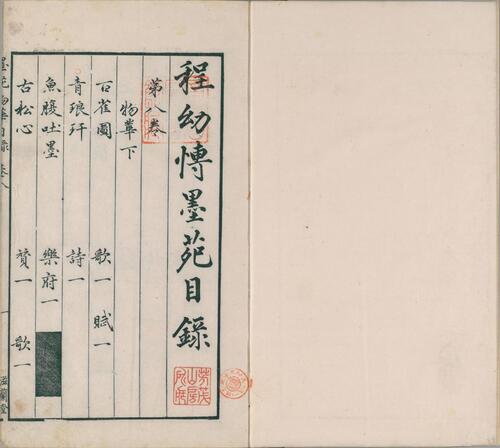 程幼愽墨苑目録
第八卷
物華下
百雀圖 歌一 賦一
青琅玕 詩一
魚腹吐墨 樂府一
古松心 贊一 歌一
墨苑物華目録 卷八 一 滋蘭堂